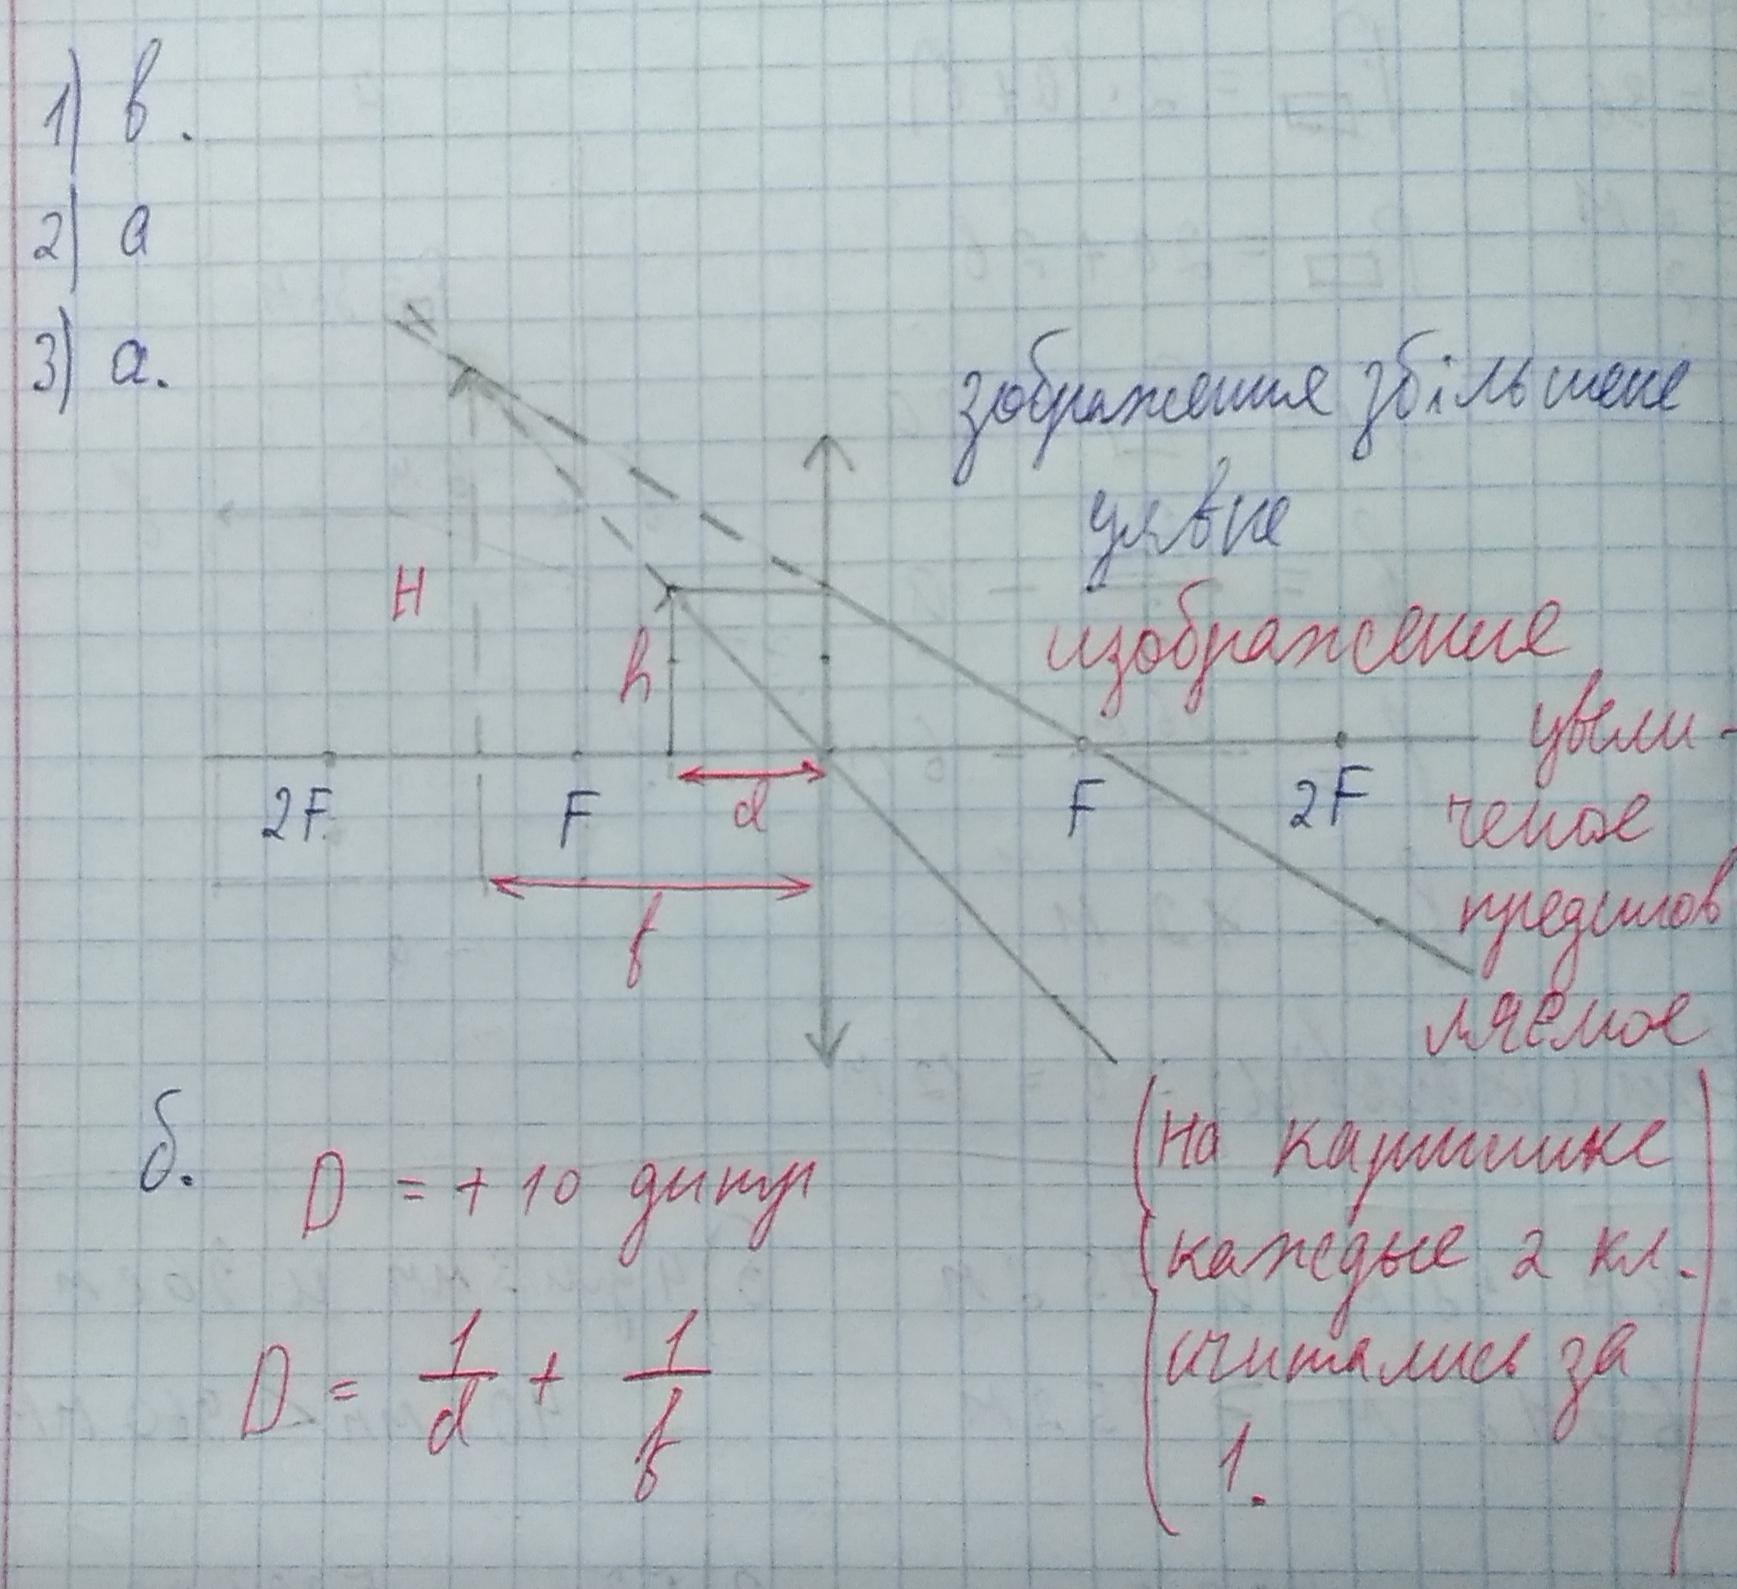 1) в.
2) а
3) а.
зображення збільшене
уявне
H
h
изображение
увели-
2F F d F 2F
ченое
f
представ
ляемое
б. D = + 10 дптр
(на картинке
каждые 2 кл.
считались за
1.)
D = 1/d + 1/f